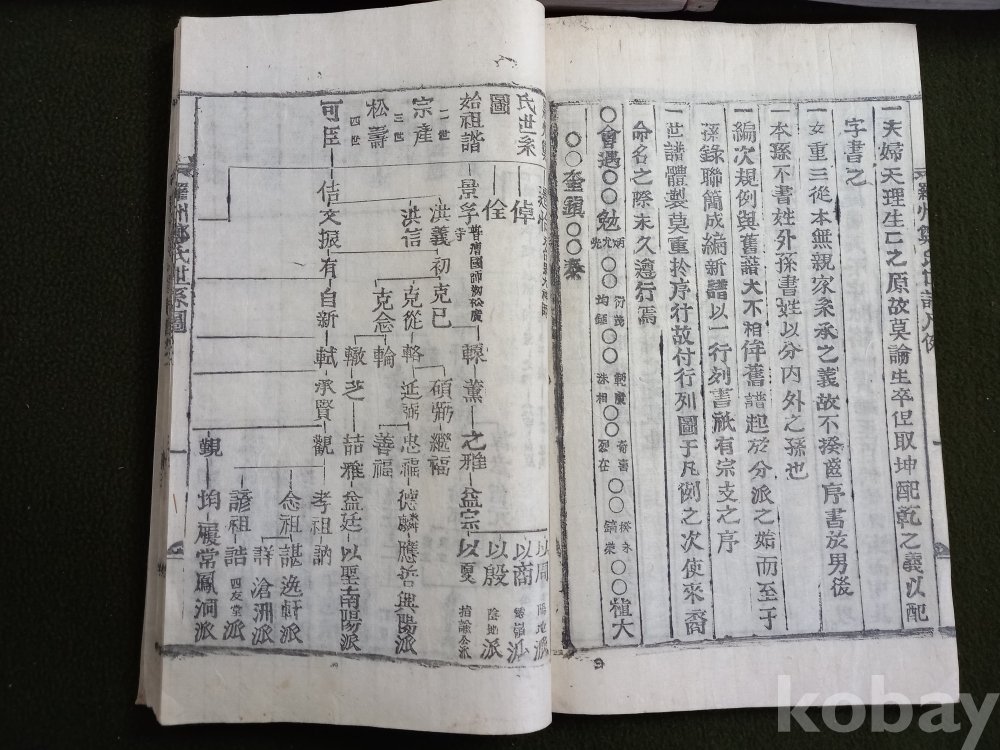 羅州鄭氏世譜凡例
一夫婦天理生亡之原故莫論生卒但取坤配乾之義以配
字書之
一女重三從本無親家系承之義故不揆齒序書於男後
一本孫不書姓外孫書姓以分內外之孫也
一編次規例與舊譜大不相侔舊譜起於分派之始而至于
孫錄聯簡成編新譜以一行列書祇有宗支之序
一世譜體製莫重於序行故付行列圖于凡例之次使來裔
命名之際永久遵行焉
○會遇○○勉 ○○ ○○ ○○ ○○植大
○○奎鎭○○泰
氏世系
圖
倬 以周 陽地派
佺 以商
以殷 陰地派
始祖諧 景孚 普濟國師 松廣寺 䡣 薰 之雅 益宗 以夏
二世
宗產 洪義 初 克己 碩弼 繼福
三世
松壽 洪信 克從 輅 延弼 忠福 德麟 應
克念 輪 善福
四世
可臣 佶 文振 有 自新 轍 芝 喆雅 益廷 以聖 南陽派
軾 承賢 觀 孝祖 訥
念祖 諶 逸軒派
詳 滄洲派
諺祖 誥 四友堂派
覬 均 履常 鳳洞派
羅州鄭氏世系圖 一
kobay